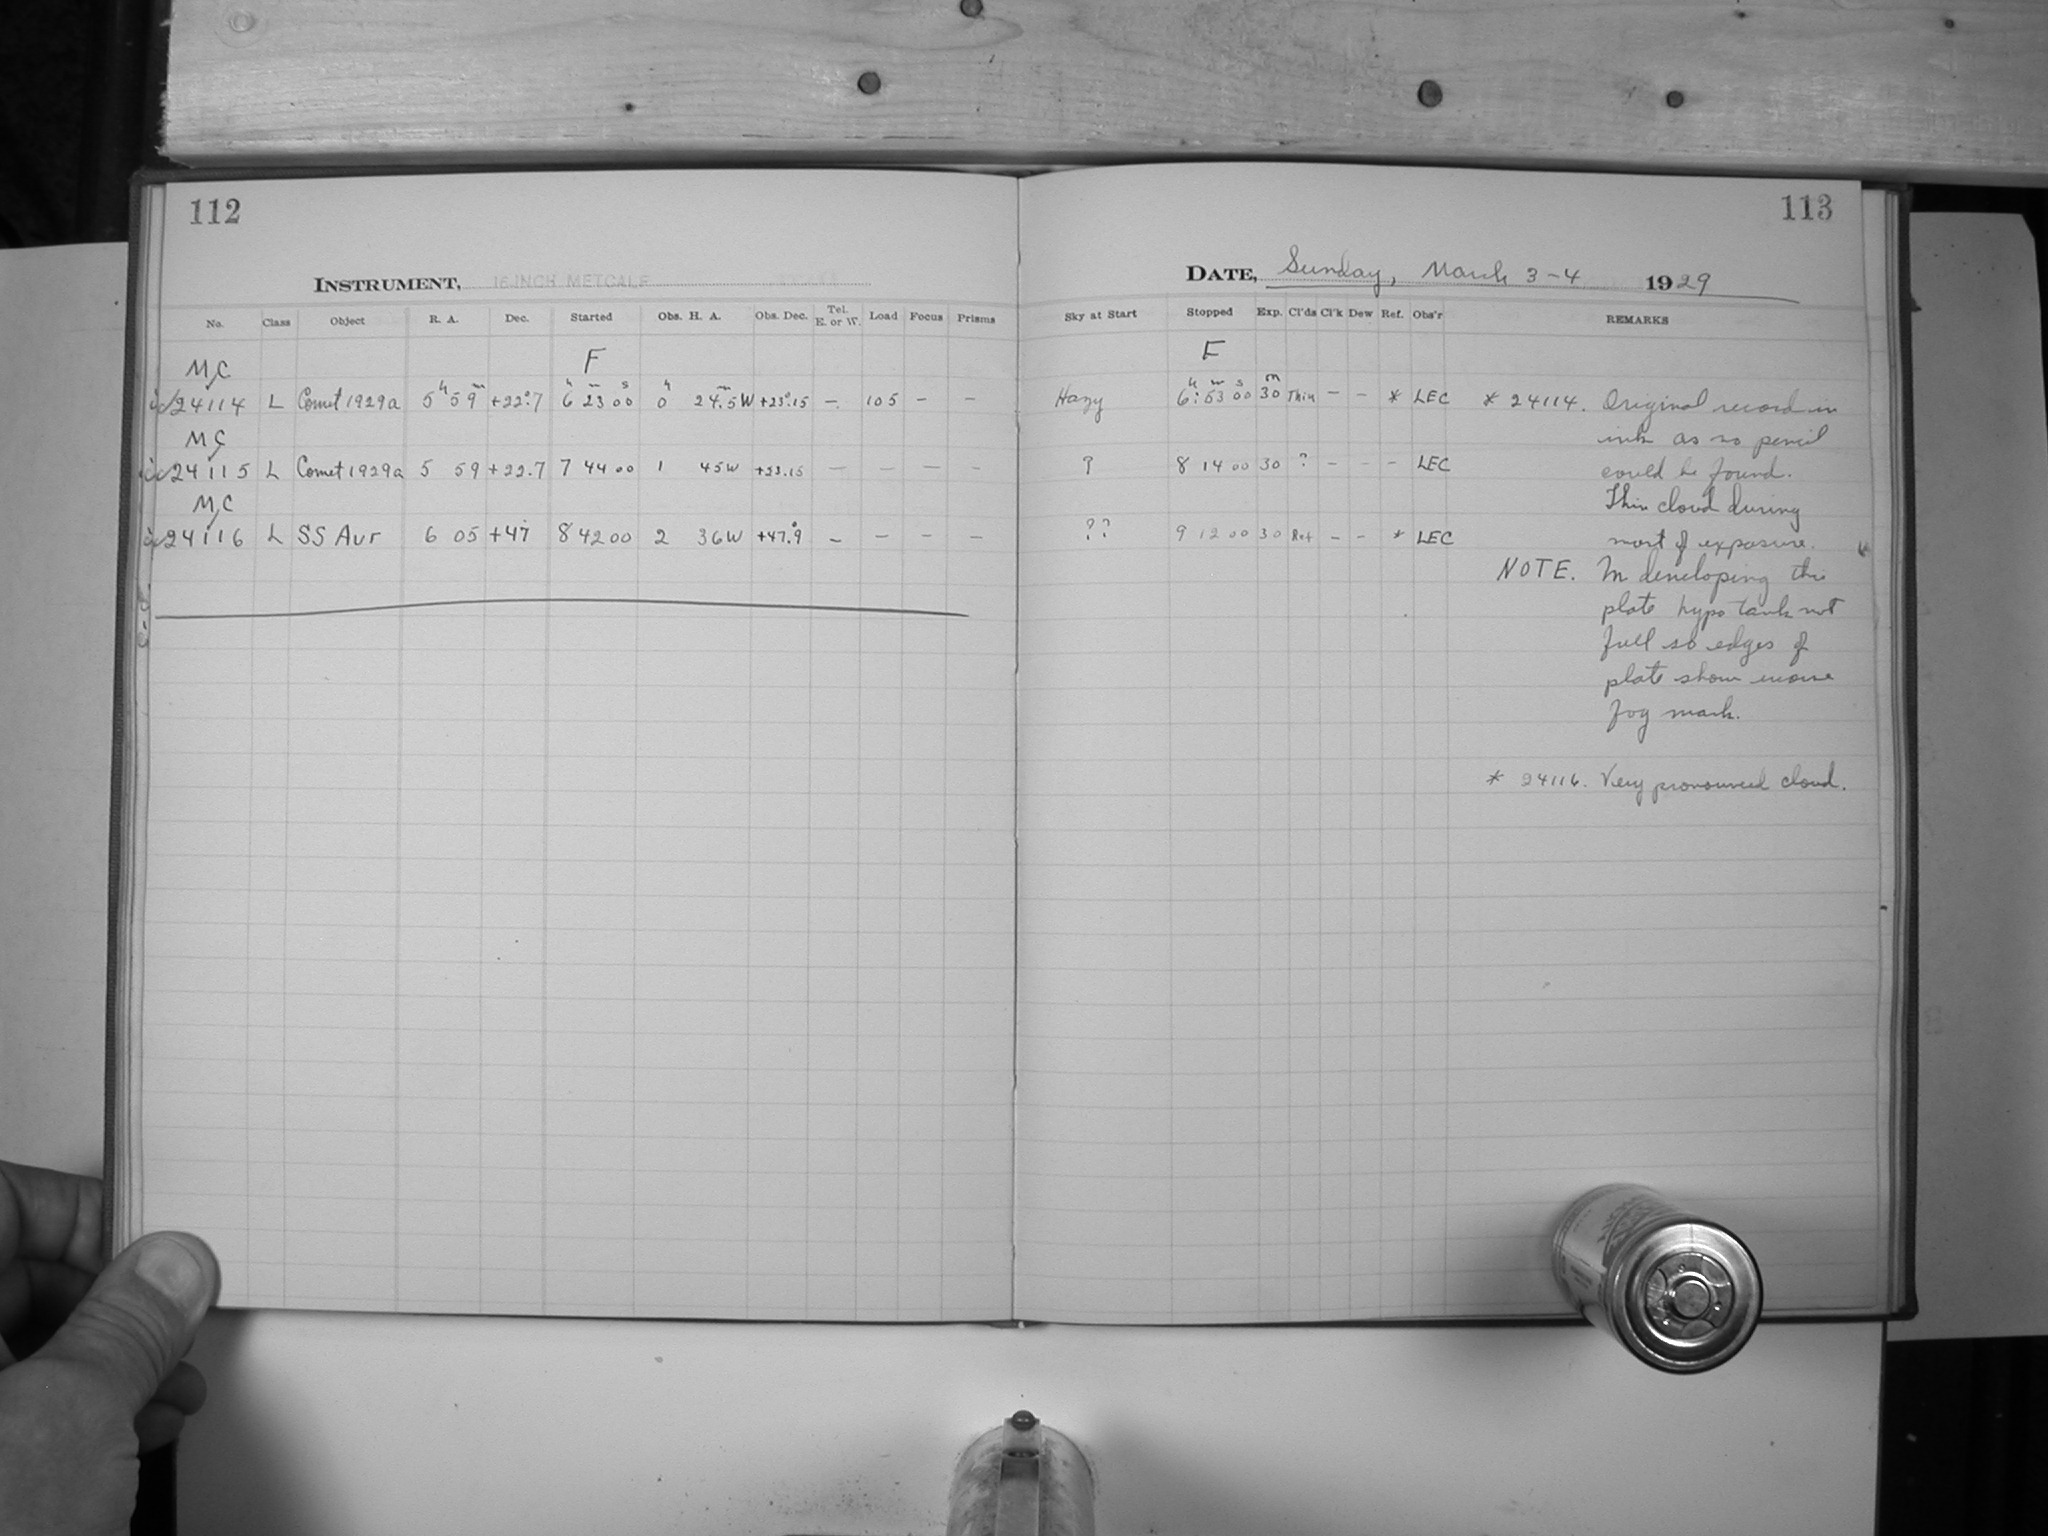 112
INSTRUMENT, 16 INCH METCALF
No. Class Object R. A. Dec. Started Obs. H. A. Obs. Dec. Tel. E. or W. Load Focus Prisms
F
MC
24114 L Comet 1929a 5h 59m +22°.7 6h 23m 00s 0h 24.5m W +23°.15 - 105 - -
MC
24115 L Comet 1929a 5 59 +22.7 7 44 00 1 45W +23.15 - - - -
MC
24116 L SS Aur 6 05 +47 8 42 00 2 36W +47.9 - - - -
113
DATE, Sunday, March 3-4 1929
Sky at Start Stopped Exp. Cl'ds Cl'k Dew Ref. Obs'r REMARKS
F
Hazy 6h:53m 00s 30m Thin - - * LEC * 24114. Original record in
ink as no pencil
? 8 14 00 30 ? - - - LEC could be found.
Thin cloud during
?? 9 12 00 30 - - * LEC most of exposure.
NOTE. In developing this
plate hypo tank not
full so edges of
plate show
fog mark.
* 24116. Very pronounced cloud.